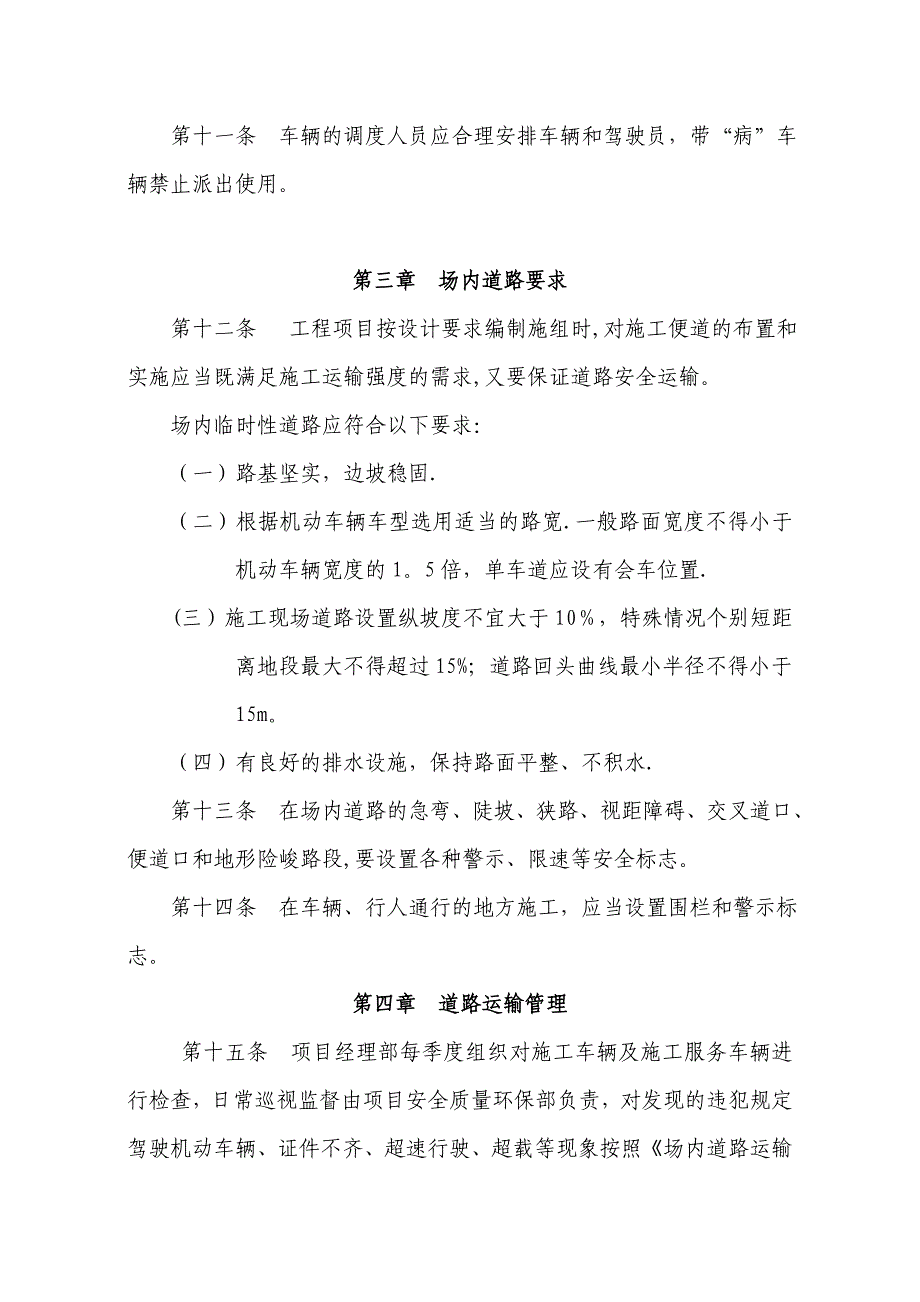 第十一条　车辆的调度人员应合理安排车辆和驾驶员，带“病”车
辆禁止派出使用。
第三章　场内道路要求
第十二条　 工程项目按设计要求编制施组时,对施工便道的布置和
实施应当既满足施工运输强度的需求,又要保证道路安全运输。
场内临时性道路应符合以下要求:
（一）路基坚实，边坡稳固.
（二）根据机动车辆车型选用适当的路宽.一般路面宽度不得小于
机动车辆宽度的1。5倍，单车道应设有会车位置.
(三）施工现场道路设置纵坡度不宜大于10%，特殊情况个别短距
离地段最大不得超过15%；道路回头曲线最小半径不得小于
15m。
（四）有良好的排水设施，保持路面平整、不积水.
第十三条　在场内道路的急弯、陡坡、狭路、视距障碍、交叉道口、
便道口和地形险峻路段,要设置各种警示、限速等安全标志。
第十四条　在车辆、行人通行的地方施工，应当设置围栏和警示标
志。
第四章　道路运输管理
第十五条　项目经理部每季度组织对施工车辆及施工服务车辆进
行检查，日常巡视监督由项目安全质量环保部负责，对发现的违犯规定
驾驶机动车辆、证件不齐、超速行驶、超载等现象按照《场内道路运输